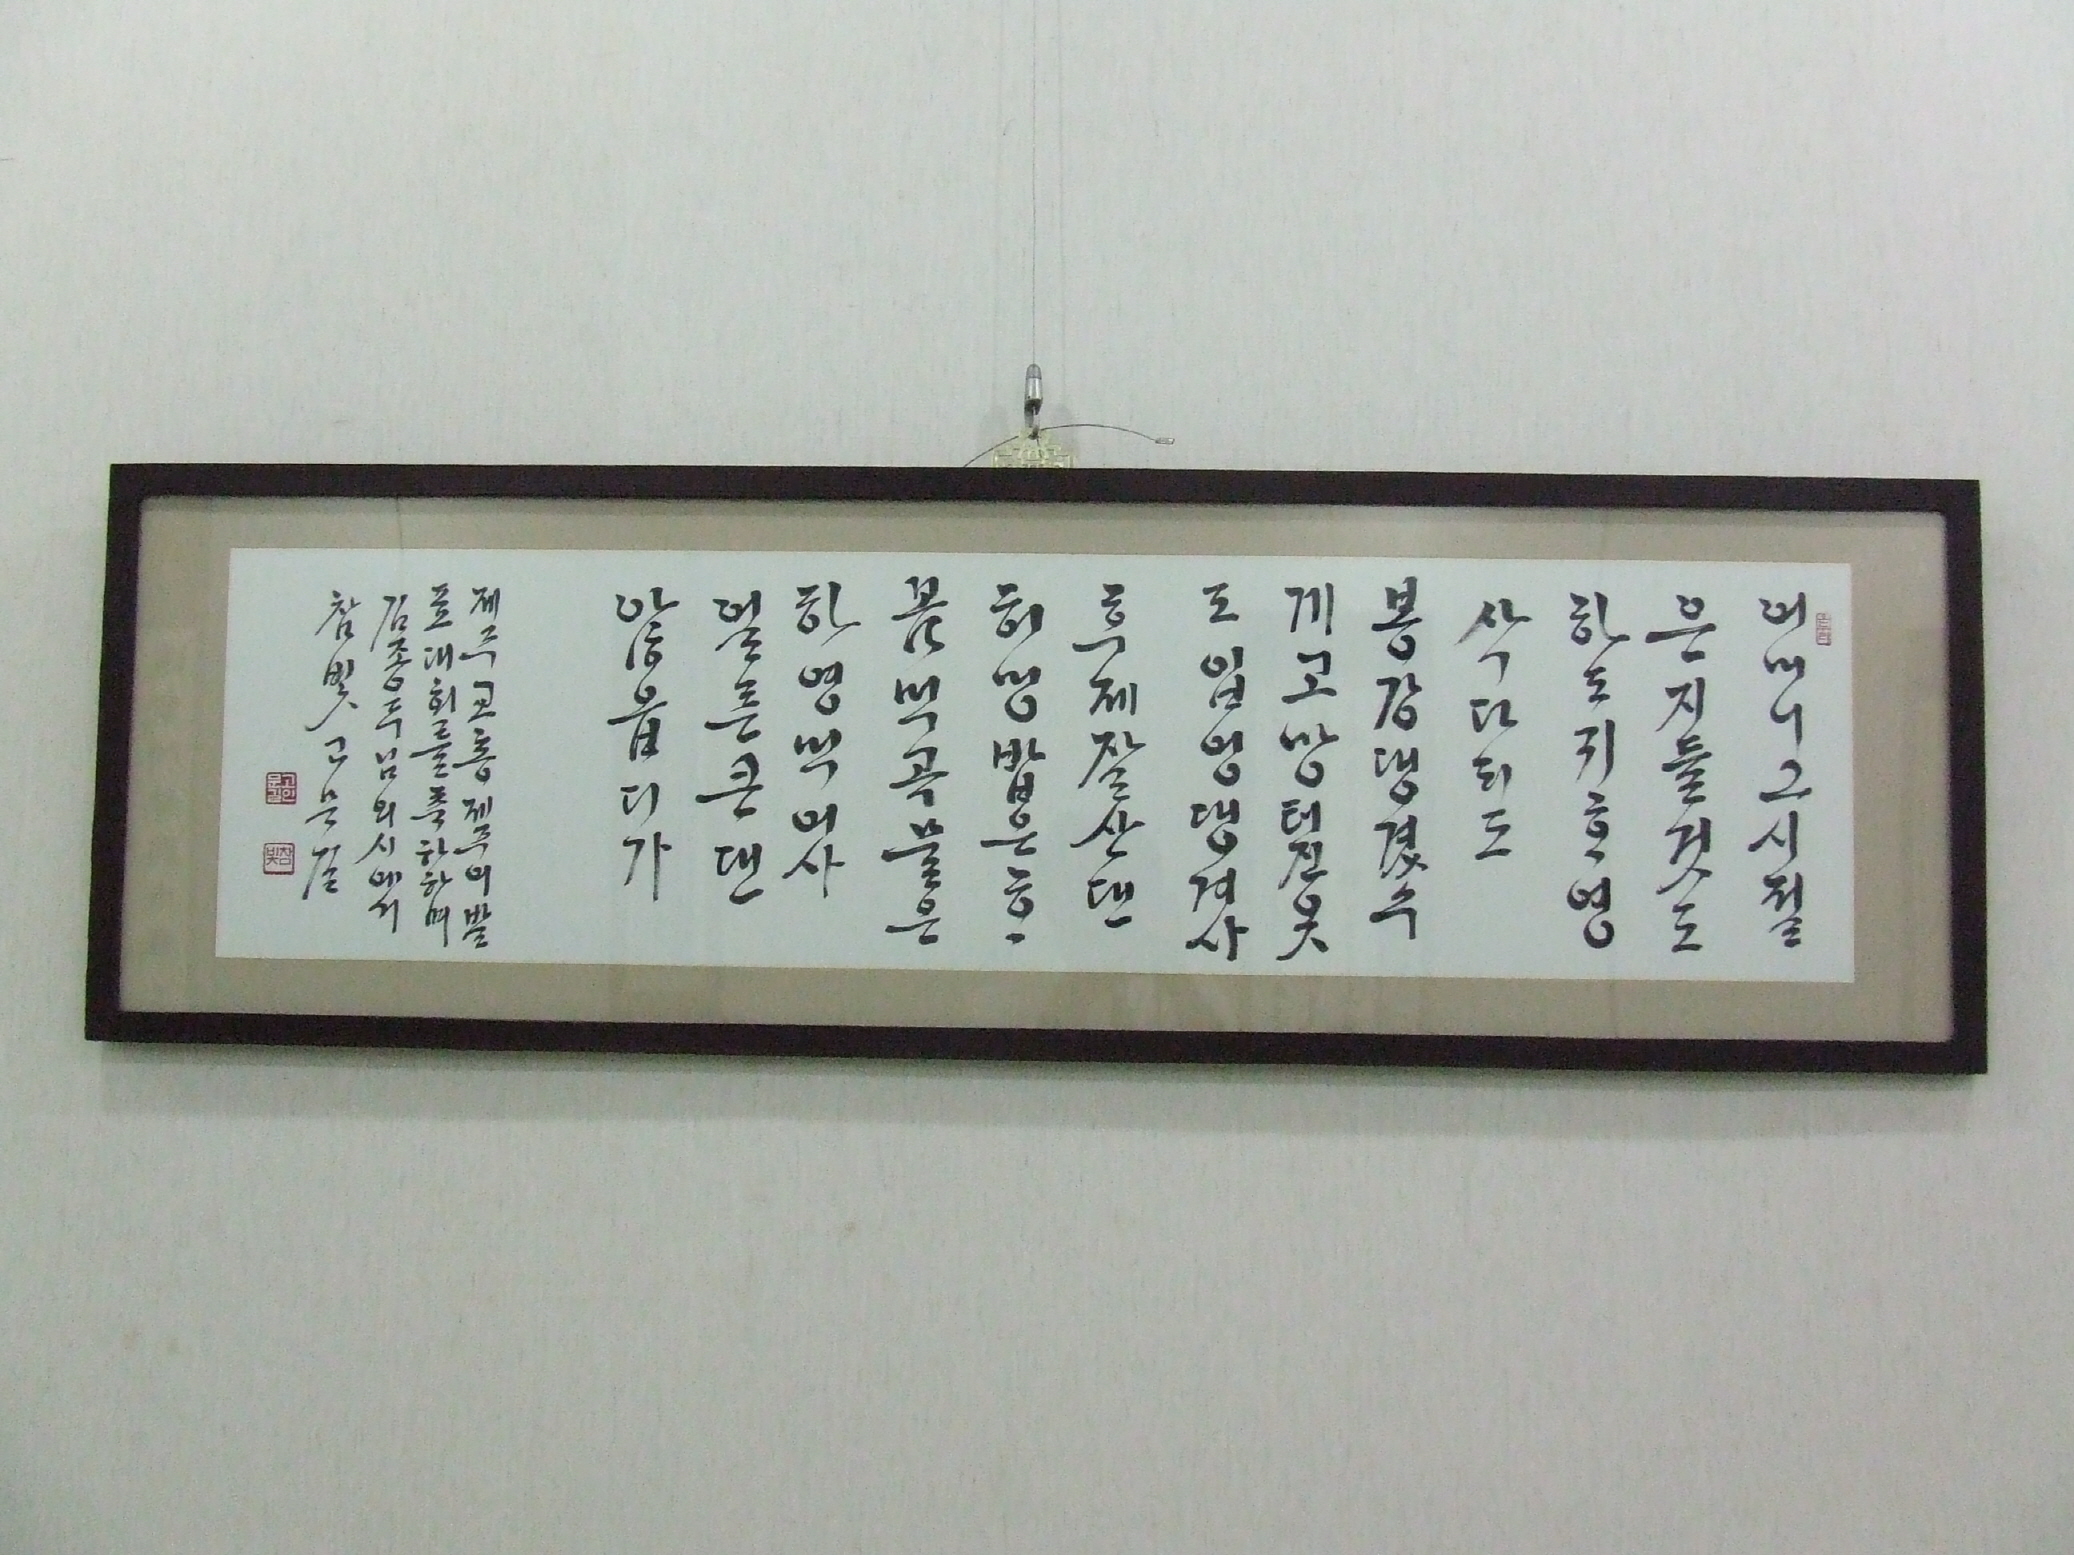 어머니 그 시절
은 지들컷도
하도 귀ᄒᆞ영
삭다리도
봉강 댕겼수
게고망 터진 옷
도 입엉 댕겨사
ᄒᆞ제 잘 산댄
허멍 밥은 ᄒᆞᄊᆞᆯ
먹곡 물은
하영 먹어사
얼른 큰댄
ᄀᆞᆮ읍디가
제주고통 제주어 발
표대회를 축하하며
김종두님의 시에서
참빛 고문길